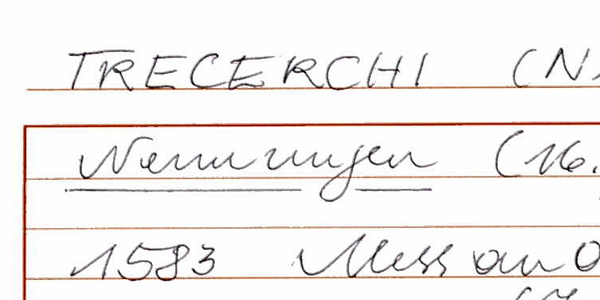 TRECERCHI (N.
Nennungen (16.
1583 Mess an O